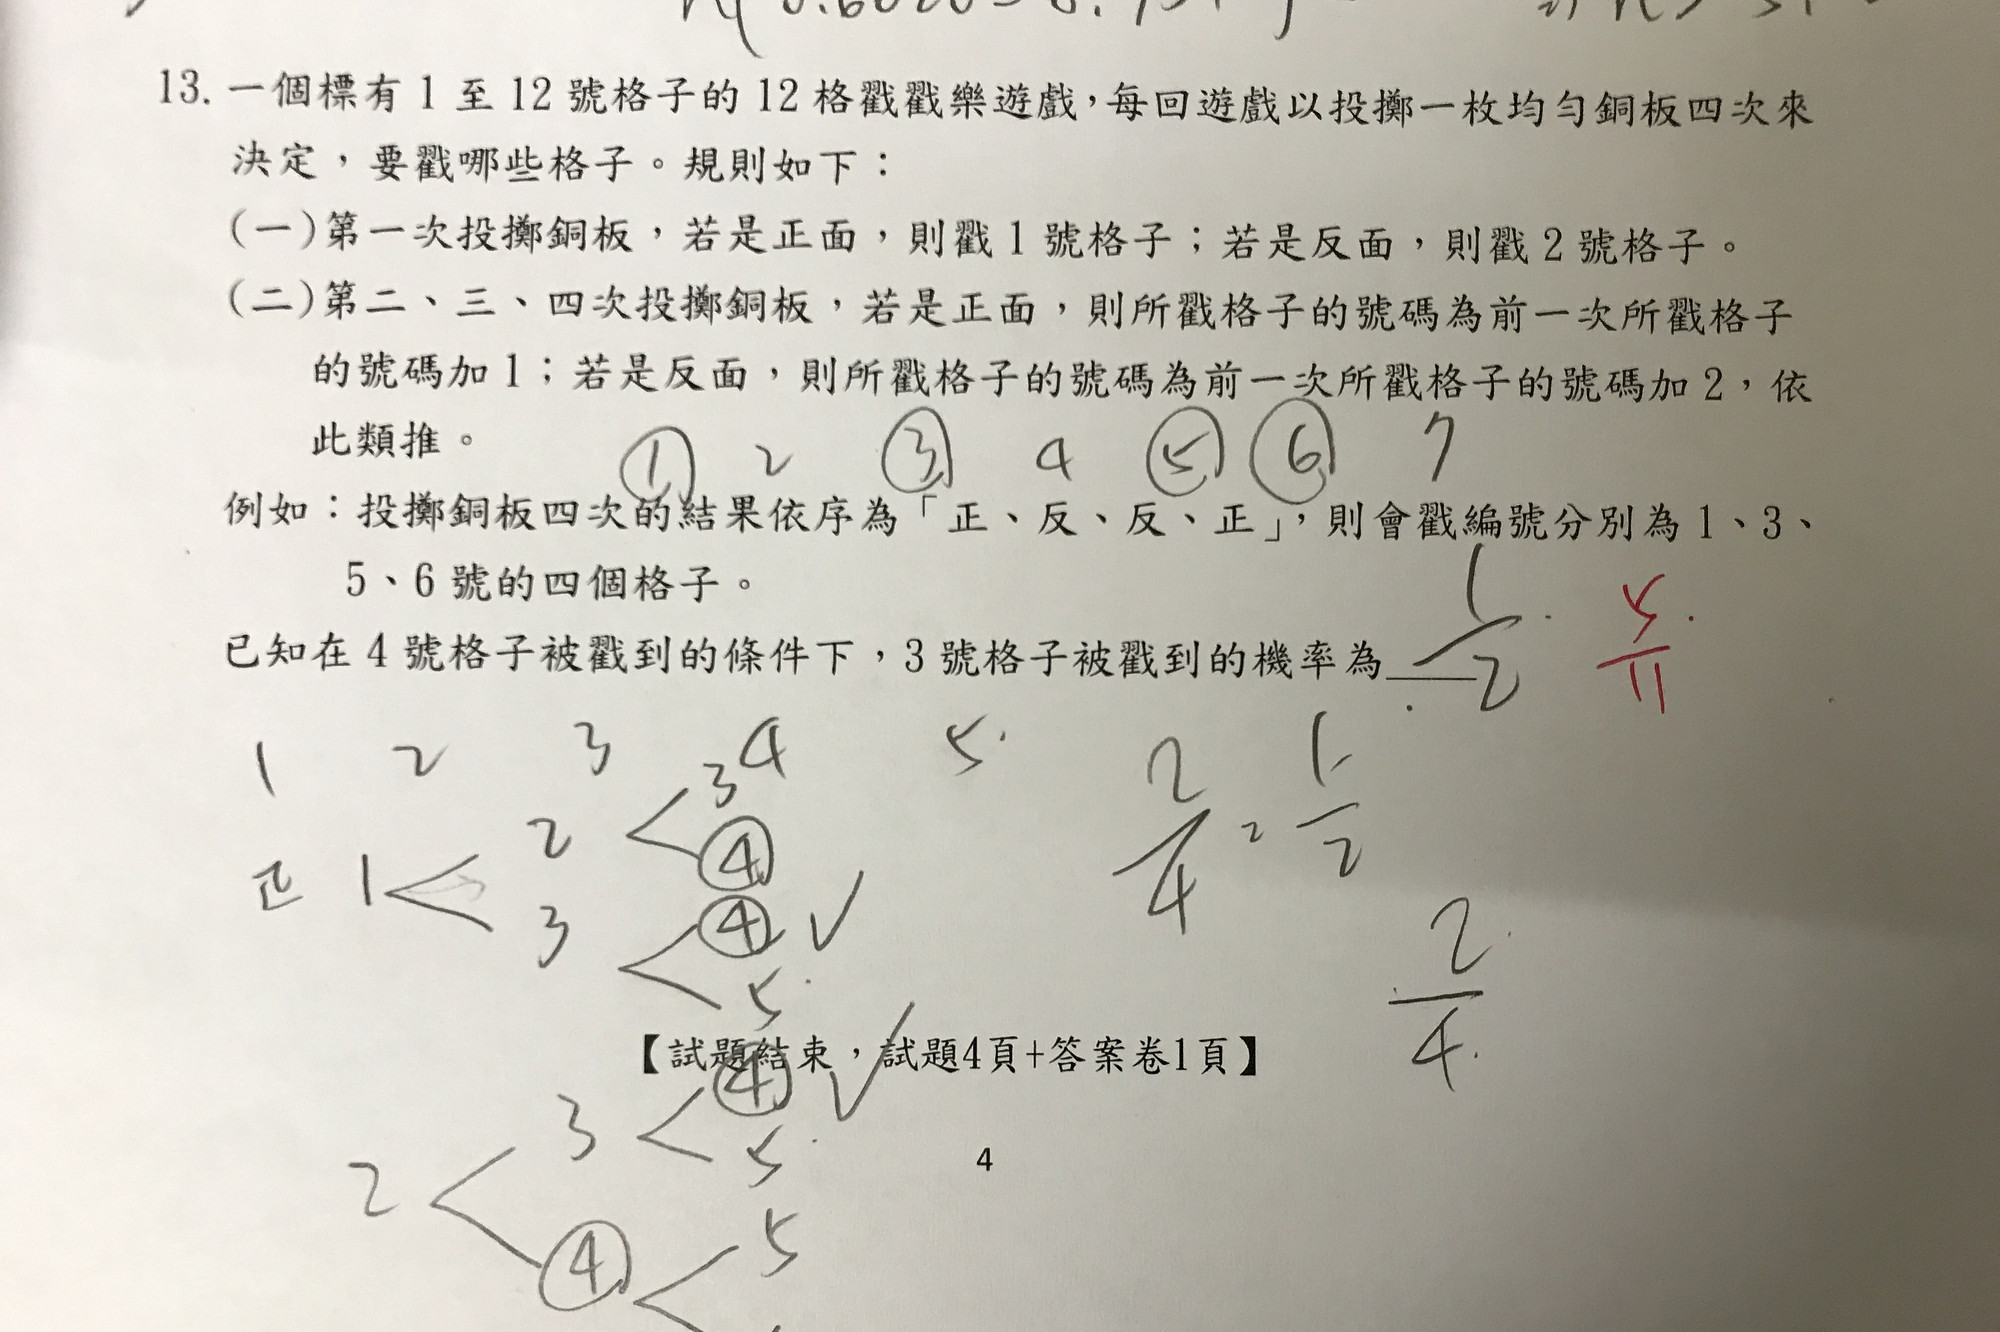 13. 一個標有 1 至 12 號格子的 12 格戳戳樂遊戲，每回遊戲以投擲一枚均勻銅板四次來
決定，要戳哪些格子。規則如下：
(一)第一次投擲銅板，若是正面，則戳 1 號格子；若是反面，則戳 2 號格子。
(二)第二、三、四次投擲銅板，若是正面，則所戳格子的號碼為前一次所戳格子
的號碼加 1；若是反面，則所戳格子的號碼為前一次所戳格子的號碼加 2，依
此類推。
① 2 ③ 4 ⑤ ⑥ 7
例如：投擲銅板四次的結果依序為「正、反、反、正」，則會戳編號分別為 1、3、
5、6 號的四個格子。
已知在 4 號格子被戳到的條件下，3 號格子被戳到的機率為____ 1/2 5/11
1 2 3 4 5
2 3
④
正 1
3 ④ ✓
5
2/4 = 1/2
2/4
【試題結束，試題4頁+答案卷1頁】
3 ④ ✓
5
4
2
④ 5